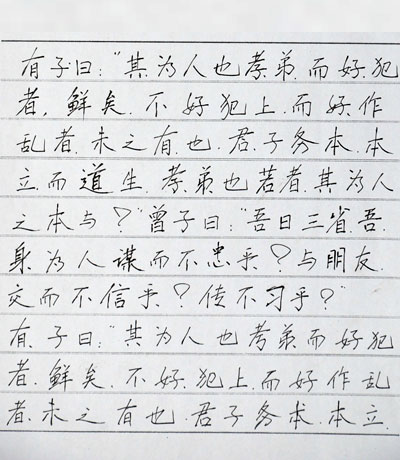 有子曰:"其为人也孝弟,而好犯
者,鲜矣,不好犯上,而好作
乱者,未之有也.君子务本,本
立而道生.孝弟也若者,其为人
之本与?"曾子曰:"吾日三省吾
身,为人谋而不忠乎?与朋友
交而不信乎?传不习乎?"
有子曰:"其为人也孝弟而好犯
者,鲜矣,不好犯上,而好作乱
者,未之有也.君子务本,本立